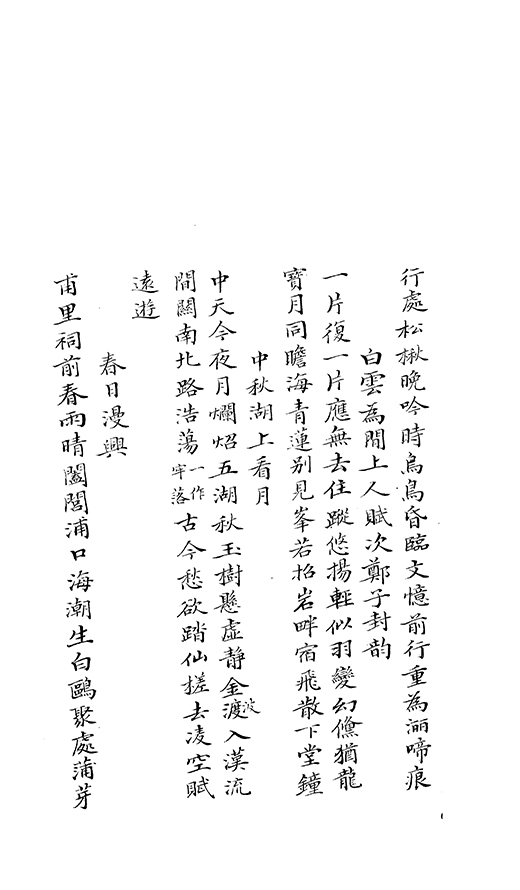 行處松楸晚吟時烏鳥昏臨文憶前行重為洒啼痕
白雲為閒上人賦次鄭子封韵
一片復一片應無去住蹤悠揚輕似羽變幻儵猶龍
寶月同瞻海青蓮别見峯若招岩畔宿飛散下堂鐘
中秋湖上看月
中天今夜月爛炤五湖秋玉樹懸虛靜金渡波入漢流
間關南北路浩蕩一作牢落古今愁欲踏仙槎去凌空賦
遠遊
春日漫興
甫里祠前春雨晴闔閭浦口海潮生白鷗聚處蒲芽